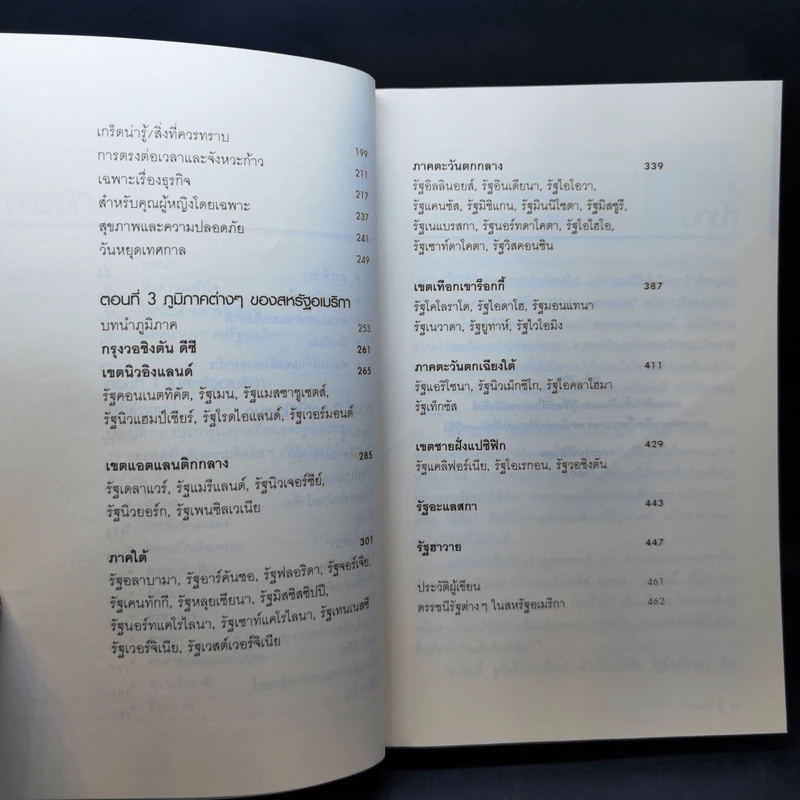 เกร็ดน่ารู้/สิ่งที่ควรทราบ 199
การตรงต่อเวลาและจังหวะก้าว 211
เฉพาะเรื่องธุรกิจ 217
สำหรับคุณผู้หญิงโดยเฉพาะ 237
สุขภาพและความปลอดภัย 241
วันหยุดเทศกาล 249
ตอนที่ 3 ภูมิภาคต่างๆ ของสหรัฐอเมริกา
บทนำภูมิภาค 253
กรุงวอชิงตัน ดีซี 261
เขตนิวอิงแลนด์ 265
รัฐคอนเนตทิคัต, รัฐเมน, รัฐแมสซาชูเซตส์,
รัฐนิวแฮมป์เชียร์, รัฐโรดไอแลนด์, รัฐเวอร์มอนต์
เขตแอตแลนติกกลาง 285
รัฐเดลาแวร์, รัฐแมรีแลนด์, รัฐนิวเจอร์ซีย์,
รัฐนิวยอร์ก, รัฐเพนซิลเวเนีย
ภาคใต้ 301
รัฐอลาบามา, รัฐอาร์คันซอ, รัฐฟลอริดา, รัฐจอร์เจีย,
รัฐเคนทักกี, รัฐหลุยเซียนา, รัฐมิสซิสซิปปี,
รัฐนอร์ทแคโรไลนา, รัฐเซาท์แคโรไลนา, รัฐเทนเนสซี
รัฐเวอร์จิเนีย, รัฐเวสต์เวอร์จิเนีย
ภาคตะวันตกกลาง 339
รัฐอิลลินอยส์, รัฐอินเดียนา, รัฐไอโอวา,
รัฐแคนซัส, รัฐมิชิแกน, รัฐมินนิโซตา, รัฐมิสซูรี,
รัฐเนแบรสกา, รัฐนอร์ทดาโคตา, รัฐโอไฮโอ,
รัฐเซาท์ดาโคตา, รัฐวิสคอนซิน
เขตเทือกเขาร็อกกี้ 387
รัฐโคโลราโด, รัฐไอดาโฮ, รัฐมอนแทนา
รัฐเนวาดา, รัฐยูทาห์, รัฐไวโอมิง
ภาคตะวันตกเฉียงใต้ 411
รัฐแอริโซนา, รัฐนิวเม็กซิโก, รัฐโอคลาโฮมา
รัฐเท็กซัส
เขตชายฝั่งแปซิฟิก 429
รัฐแคลิฟอร์เนีย, รัฐโอเรกอน, รัฐวอชิงตัน
รัฐอะแลสกา 443
รัฐฮาวาย 447
ประวัติผู้เขียน 461
ดรรชนีรัฐต่างๆ ในสหรัฐอเมริกา 462